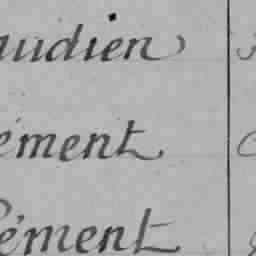 audien
ément
lément